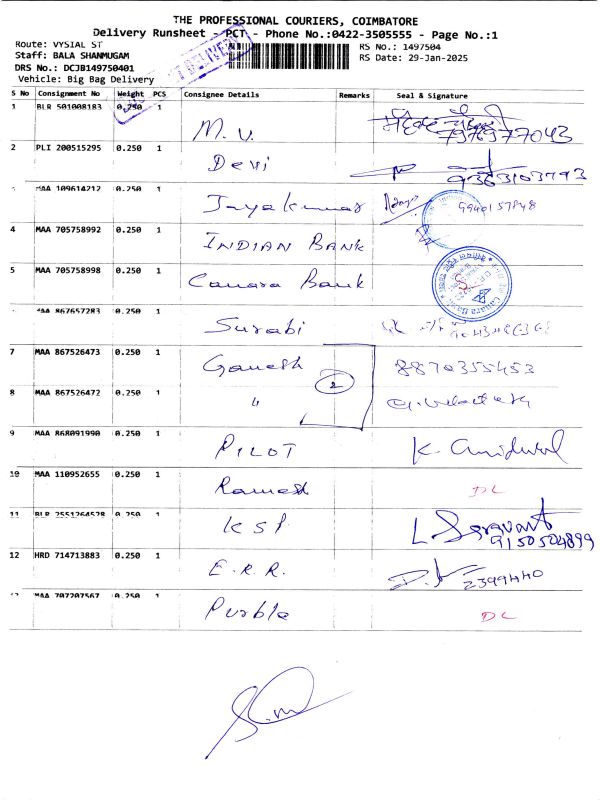 THE PROFESSIONAL COURIERS, COIMBATORE
Delivery Runsheet - PCT - Phone No.:0422-3505555 - Page No.:1
Route: VYSIAL ST
RS No.: 1497504
Staff: BALA SHANMUGAM
RS Date: 29-Jan-2025
DRS No.: DCJB149750401
Vehicle: Big Bag Delivery
S No Consignment No Weight PCS Consignee Details Remarks Seal & Signature
1 BLR 501008183 0.250 1 M. V. 7976977043
2 PLI 200515295 0.250 1 Devi 9363103793
MAA 109614212 0.250 1 Jayakumar 9940157848
4 MAA 705758992 0.250 1 INDIAN BANK
5 MAA 705758998 0.250 1 Canara Bank
MAA 867657283 0.250 1 Surabi
7 MAA 867526473 0.250 1 Ganesh 8870355453
8 MAA 867526472 0.250 1 " 2
9 MAA 868091990 0.250 1 PILOT K.
10 MAA 110952655 0.250 1 Ramesh DL
11 BLR 2551264528 0.250 1 KSP L 9150504899
12 HRD 714713883 0.250 1 E.R.R. 2399440
MAA 707207567 0.250 1 Purble DL